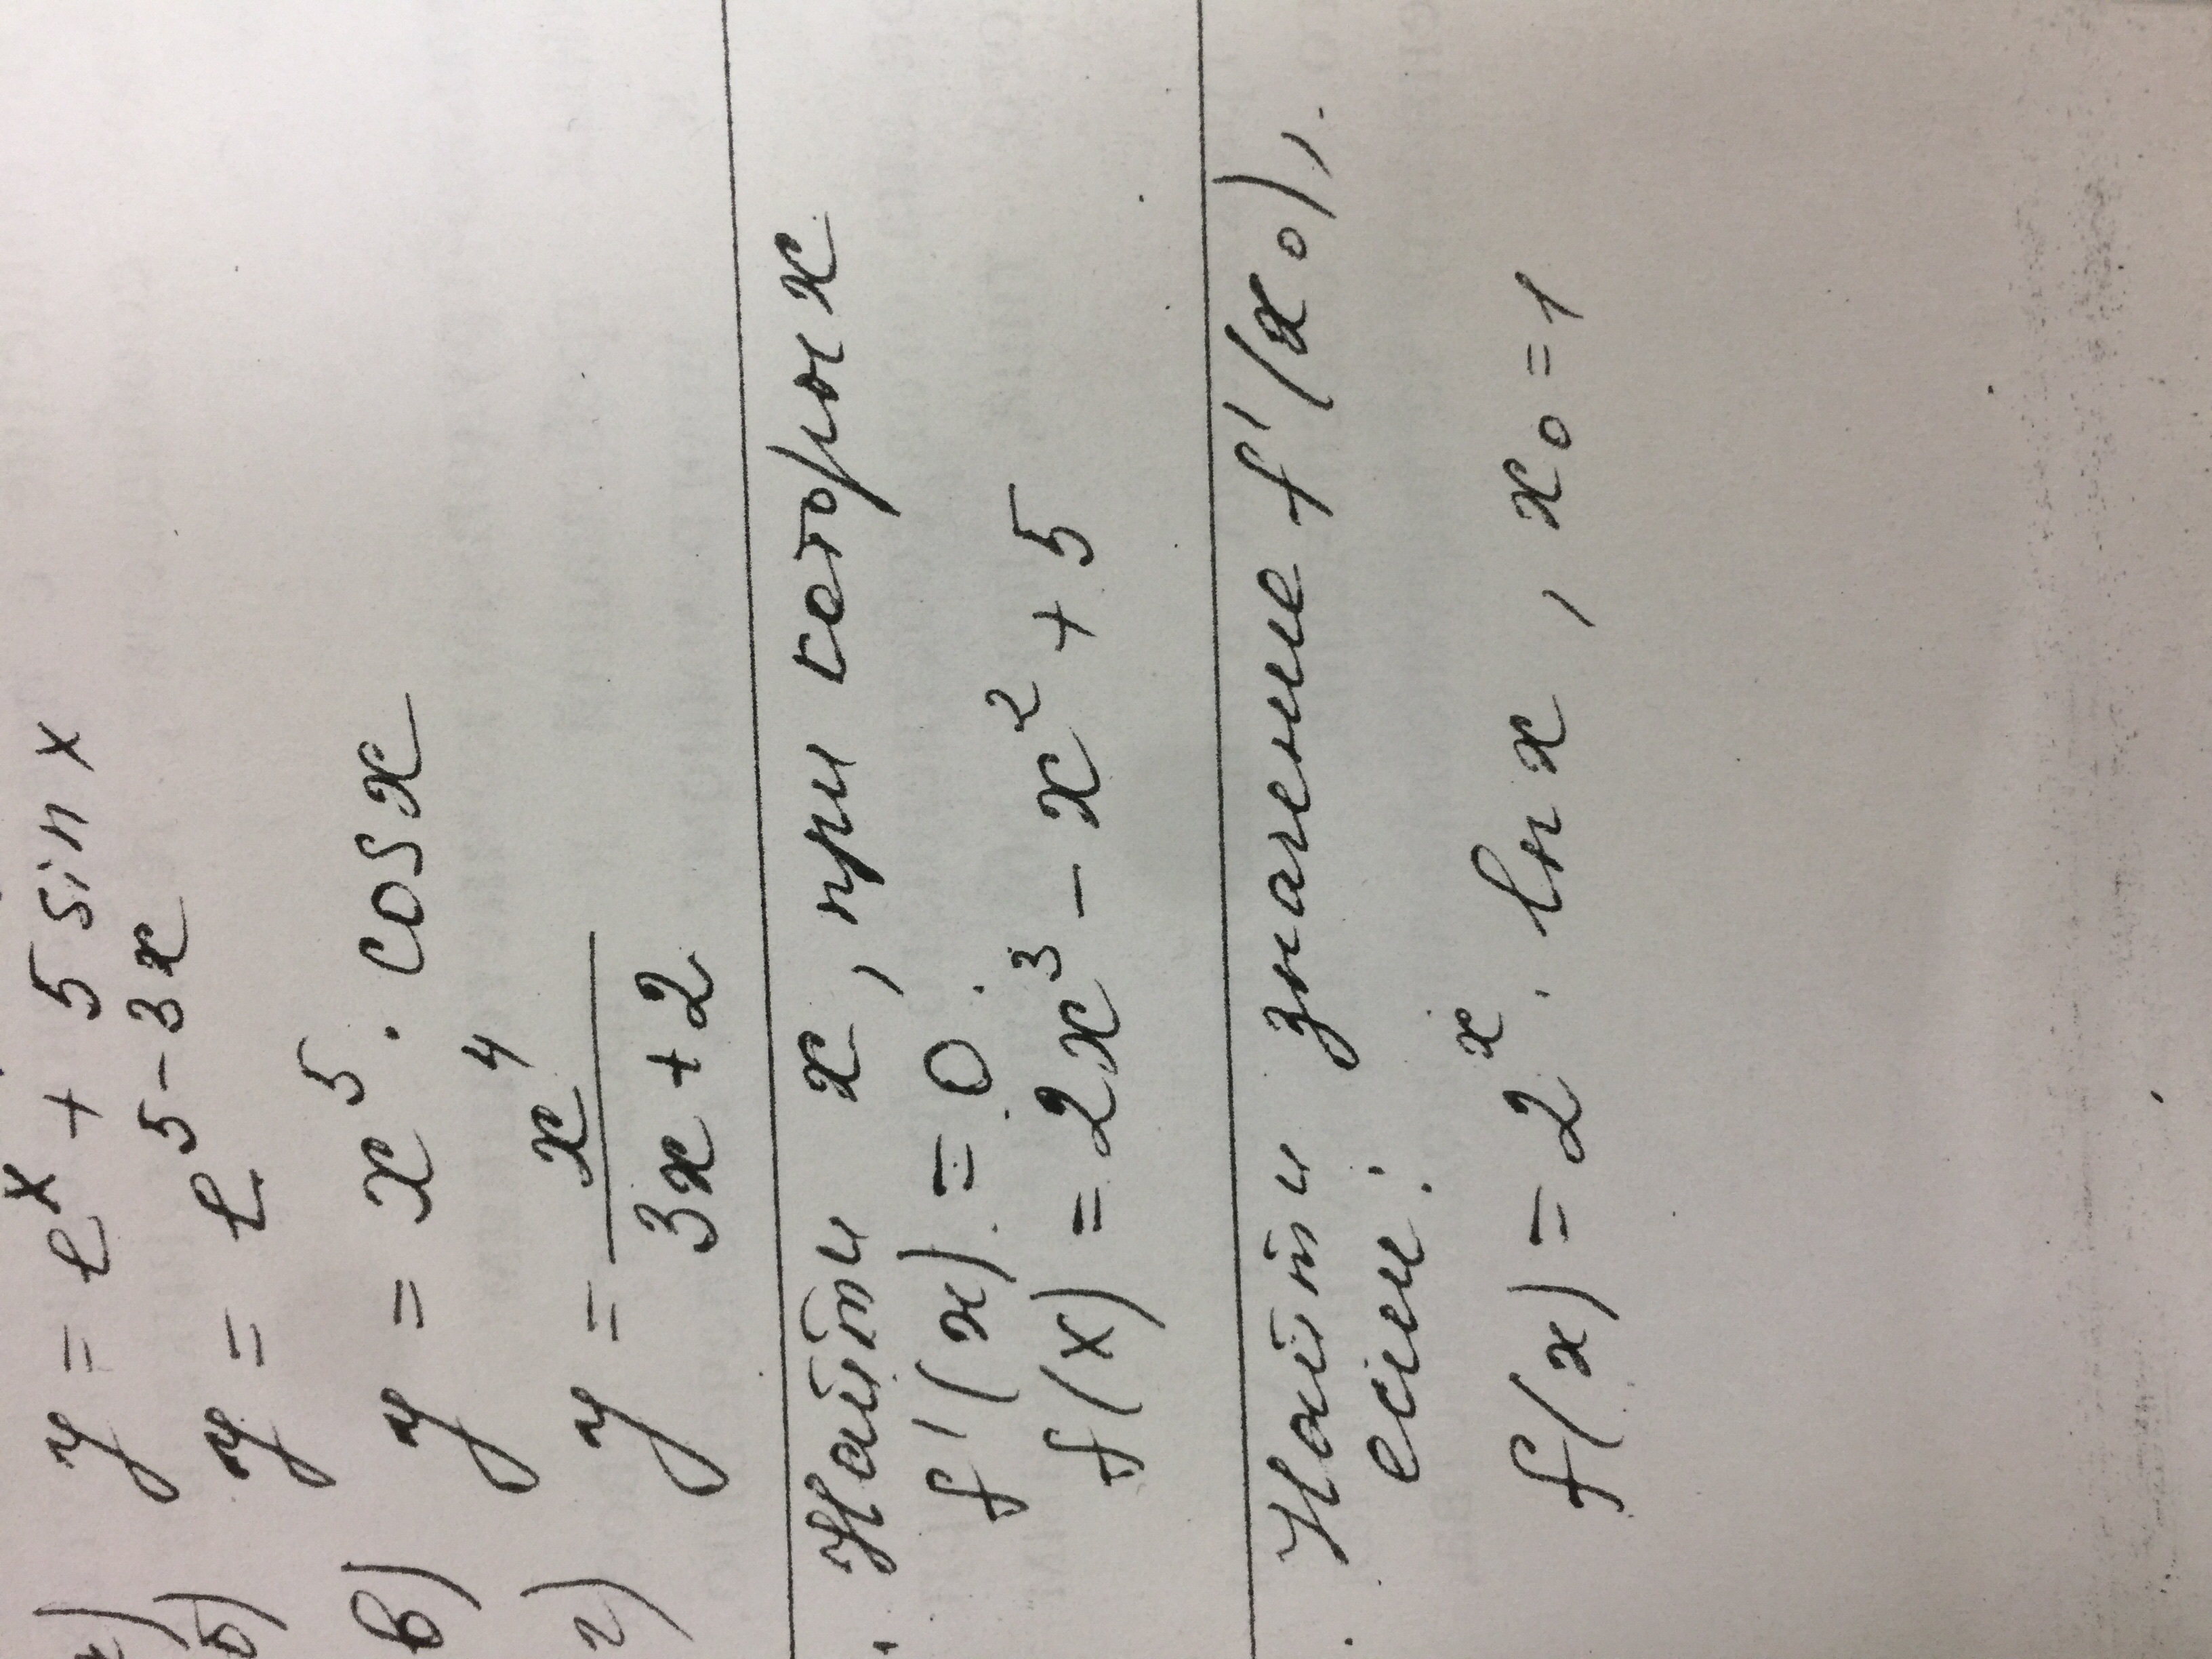 а) y = e^x + 5 sin x
б) y = e^{5-3x}
в) y = x^5 · cos x
г) y = \frac{x^4}{3x+2}
Найти x, при которых
f'(x) = 0.
f(x) = 2x^3 - x^2 + 5
Найти значение f'(x_0),
если:
f(x) = 2^x · ln x, x_0 = 1